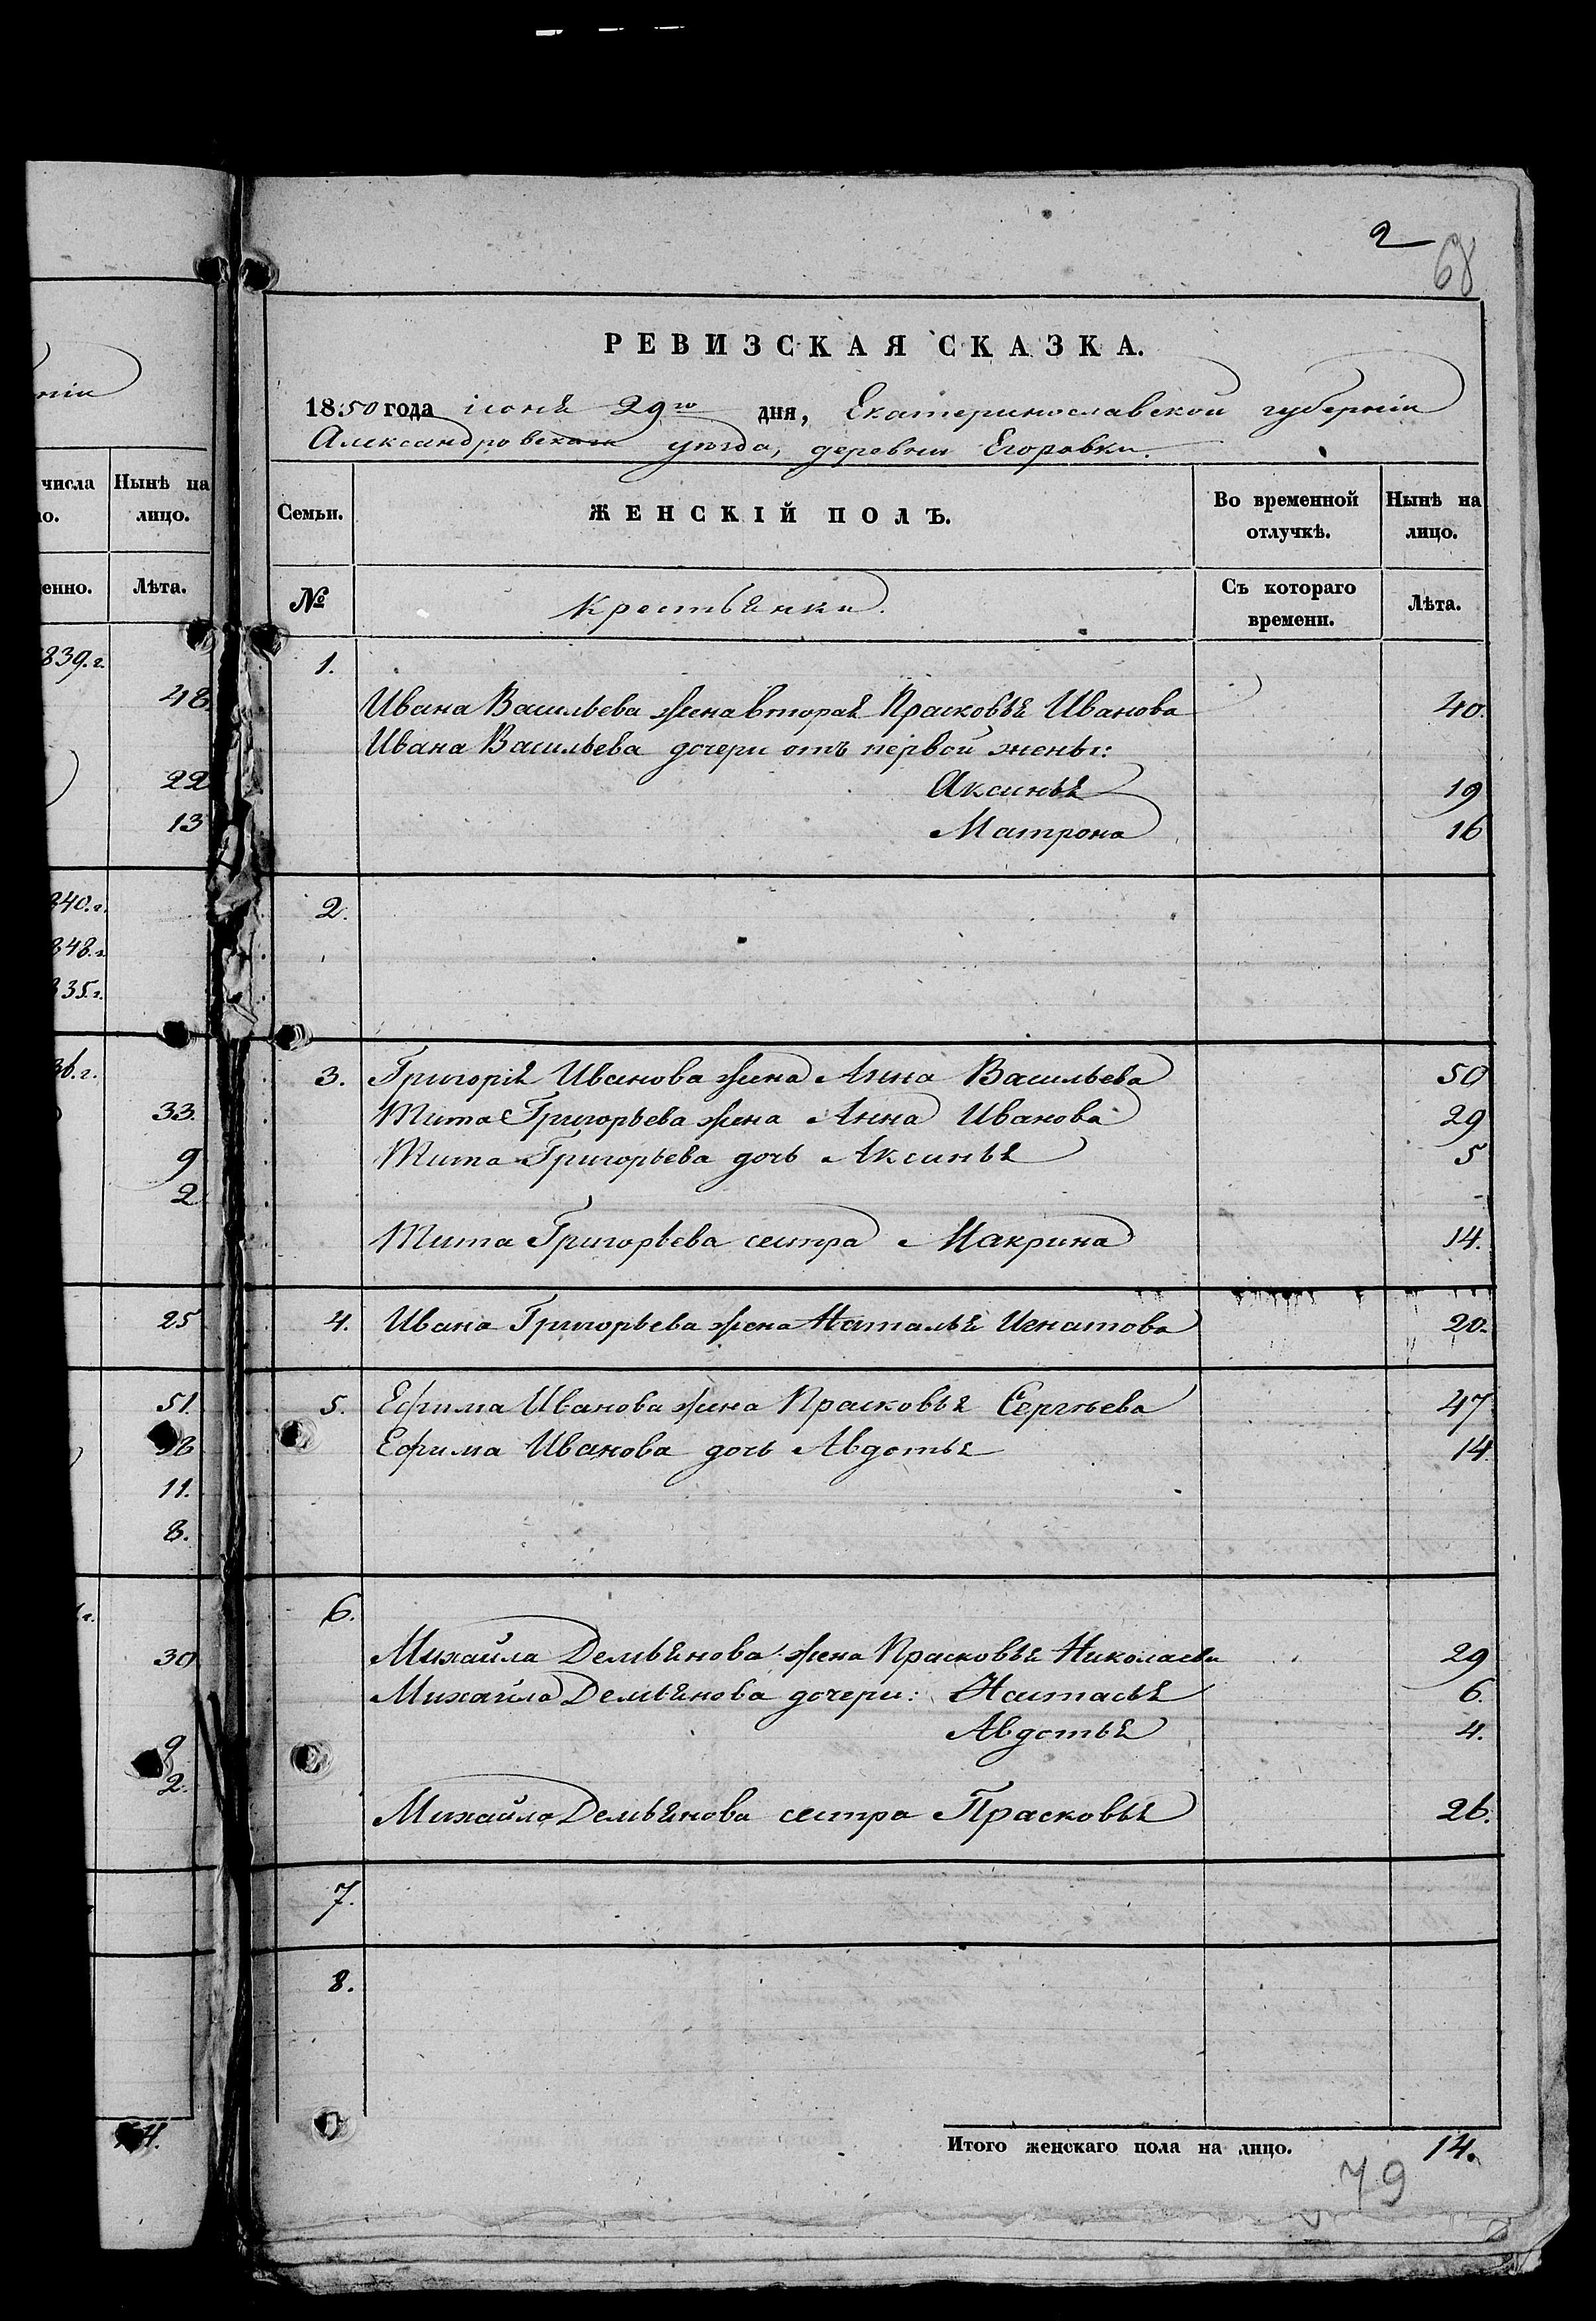 2
68
РЕВИЗСКАЯ СКАЗКА.
1850 года іюня 29го дня, Екатеринославской губерніи
Александровскаго уѣзда, деревни Егоровки.
числа Нынѣ на
но. лицо.
Семьи. ЖЕНСКІЙ ПОЛЪ. Во временной отлучкѣ. Нынѣ на лицо.
енно. Лѣта.
№ Крестьянки. Съ котораго времени. Лѣта.
839.г.
48.
22
13
1.
Ивана Васильева жена вторая Прасковья Иванова 40.
Ивана Васильева дочери отъ первой жены:
Аксинья 19
Матрона 16
840.г.
848.г.
835.г.
2.
36.г.
33.
9
2
3. Григорія Иванова жена Анна Васильева 50
Тита Григорьева жена Анна Иванова 29
Тита Григорьева дочь Аксинья 5
Тита Григорьева сестра Макрина 14.
25
4. Ивана Григорьева жена Наталья Игнатова 20.
51.
11.
8.
5. Ефима Иванова жена Прасковья Сергѣева 47
Ефима Иванова дочь Авдотья 14.
30
9
2.
6.
Михайла Демьянова жена Прасковья Николаева 29
Михайла Демьянова дочери: Настасья 6.
Авдотья 4.
Михайла Демьянова сестра Прасковья 26.
7.
8.
Итого женскаго пола на лицо. 14.
79